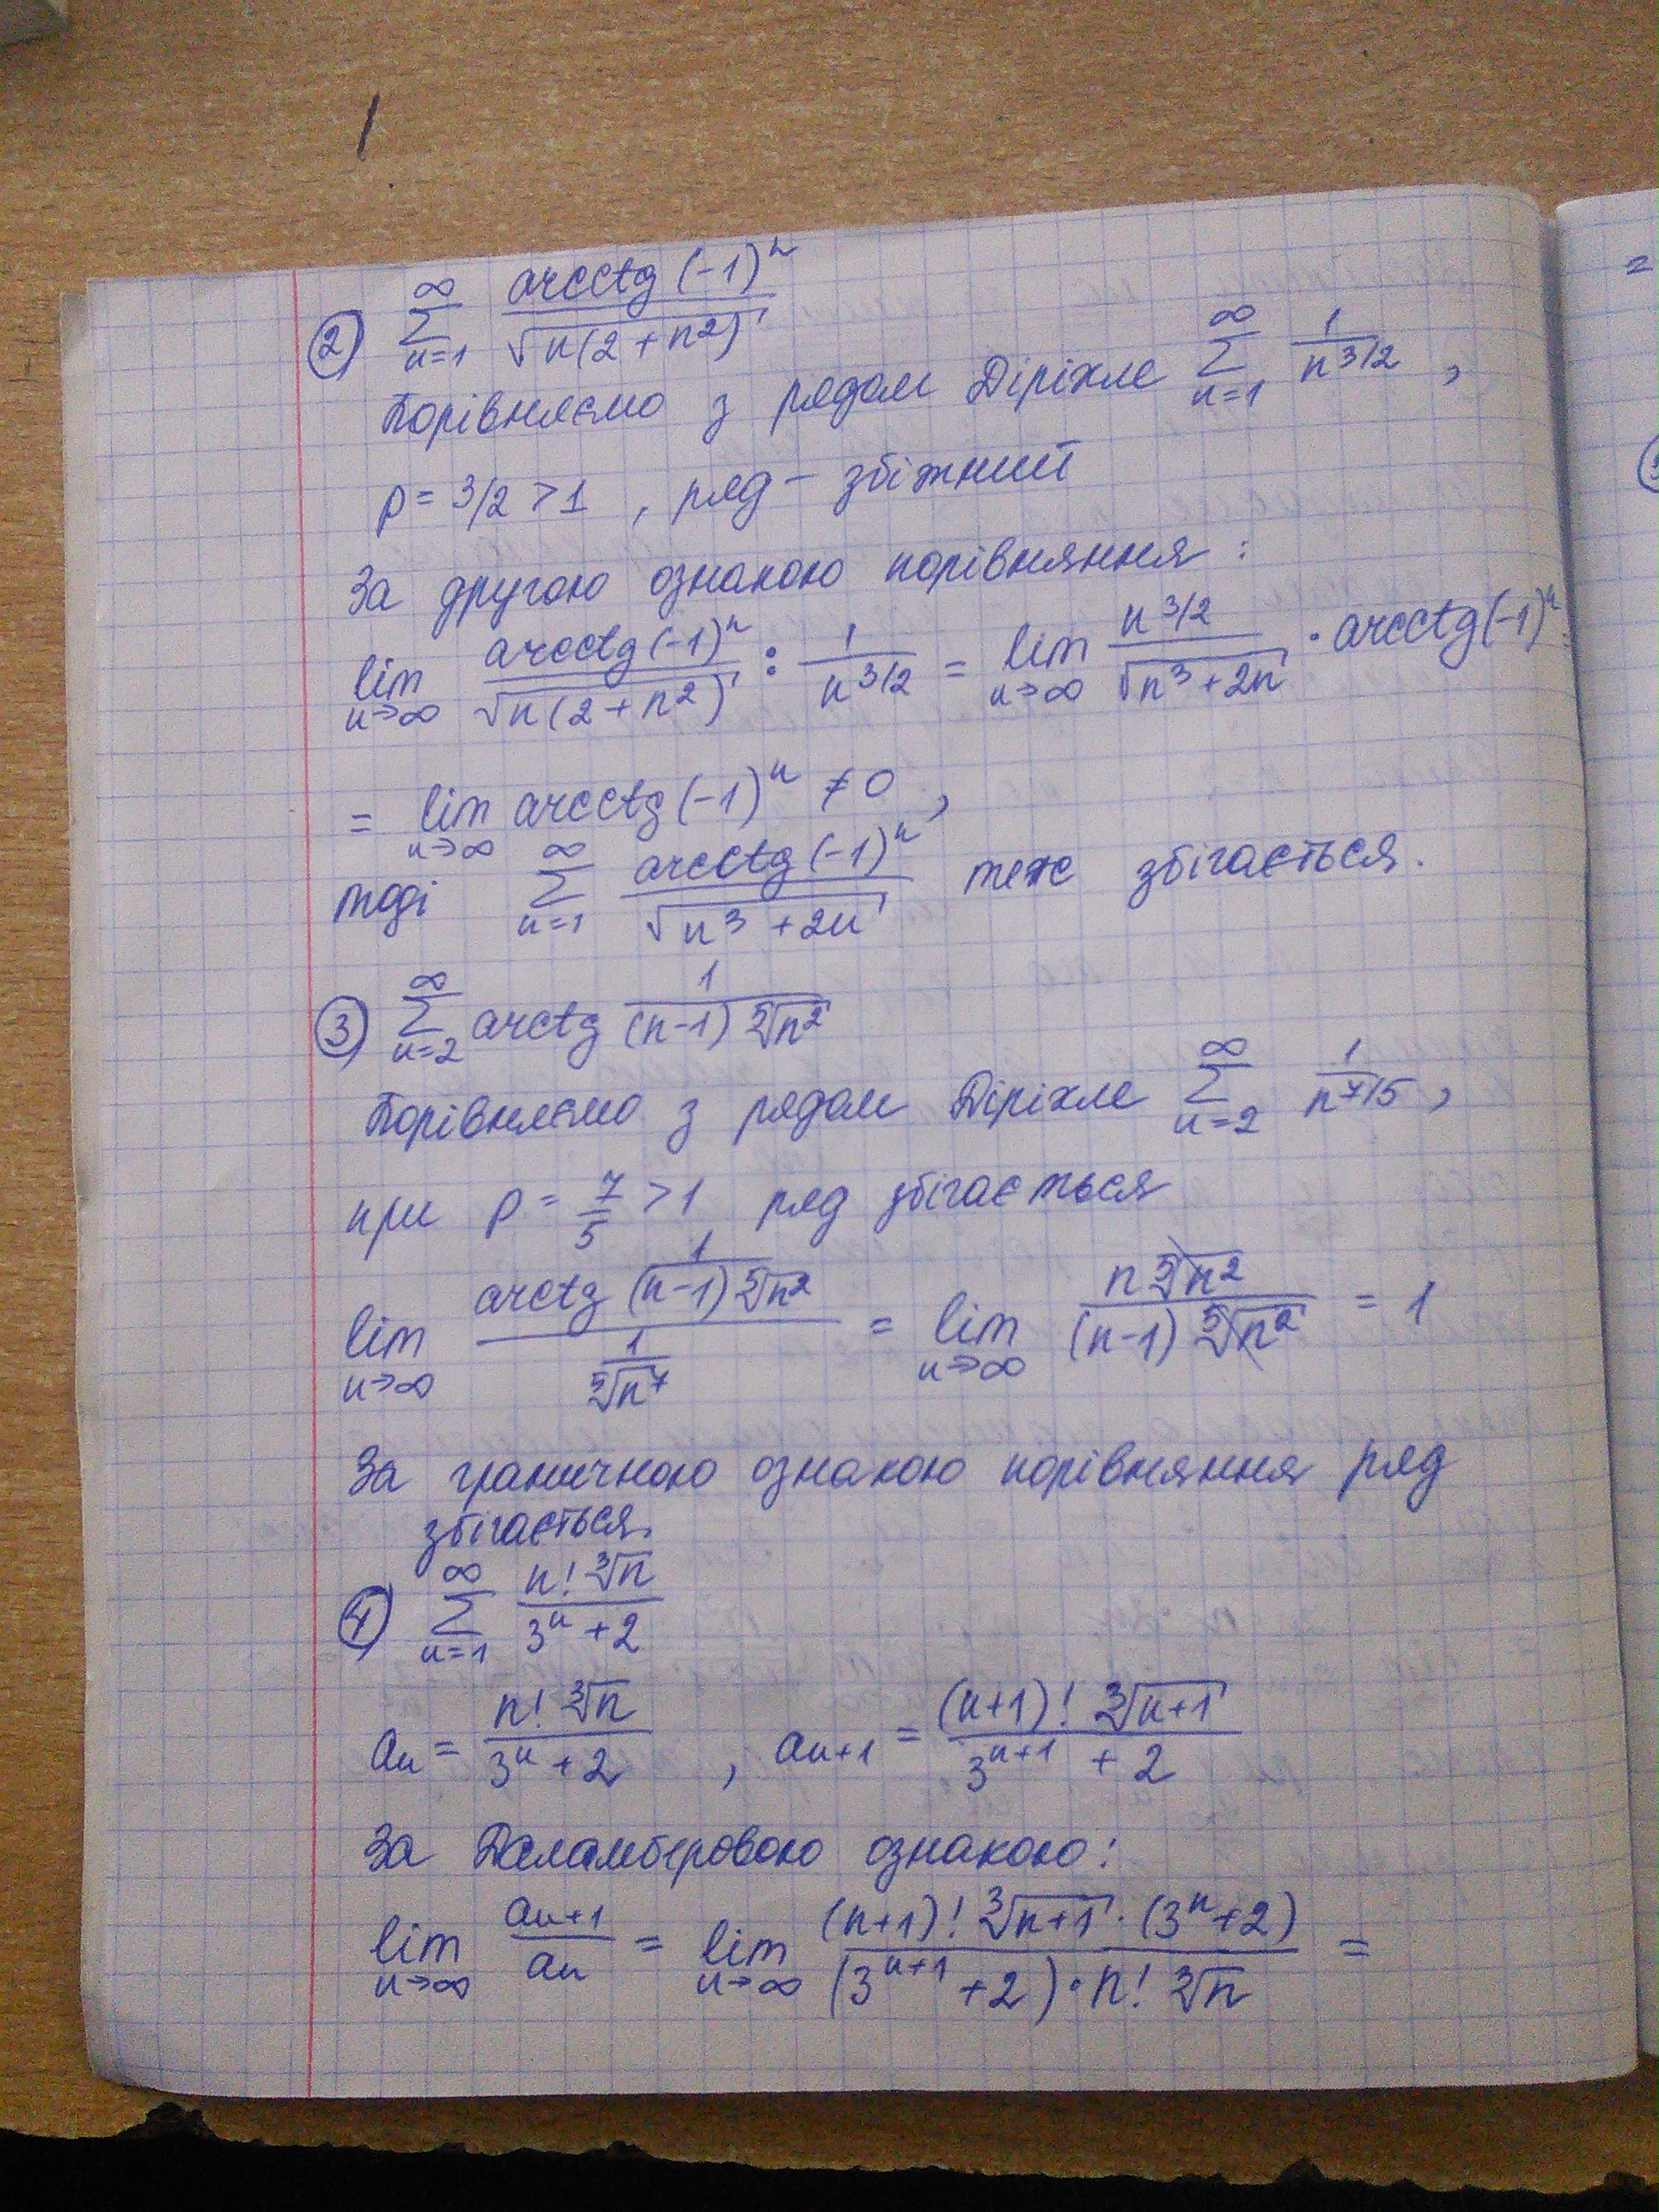 ② ∑_{n=1}^{∞} arcctg(-1)^n / √(n(2+n²))
Порівняємо з рядом Діріхле ∑_{n=1}^{∞} 1/n^{3/2} ,
p = 3/2 > 1 , ряд – збіжний
За другою ознакою порівняння :
lim_{n→∞} arcctg(-1)^n / √(n(2+n²)) : 1/n^{3/2} = lim_{n→∞} n^{3/2} / √(n³+2n) · arcctg(-1)^n =
= lim_{n→∞} arcctg(-1)^n ≠ 0 ,
тоді ∑_{n=1}^{∞} arcctg(-1)^n / √(n³+2n) теж збігається.
③ ∑_{n=2}^{∞} arctg 1/((n-1) ⁵√n²)
Порівняємо з рядом Діріхле ∑_{n=2}^{∞} 1/n^{7/5} ,
при p = 7/5 > 1 ряд збігається
lim_{n→∞} arctg 1/((n-1) ⁵√n²) / (1/⁵√n⁷) = lim_{n→∞} n ⁵√n² / ((n-1) ⁵√n²) = 1
За граничною ознакою порівняння ряд
збігається.
④ ∑_{n=1}^{∞} n! ³√n / (3^n + 2)
a_n = n! ³√n / (3^n + 2) , a_{n+1} = (n+1)! ³√(n+1) / (3^{n+1} + 2)
За Даламберовою ознакою:
lim_{n→∞} a_{n+1}/a_n = lim_{n→∞} (n+1)! ³√(n+1) · (3^n+2) / ((3^{n+1} + 2) · n! ³√n) =
=